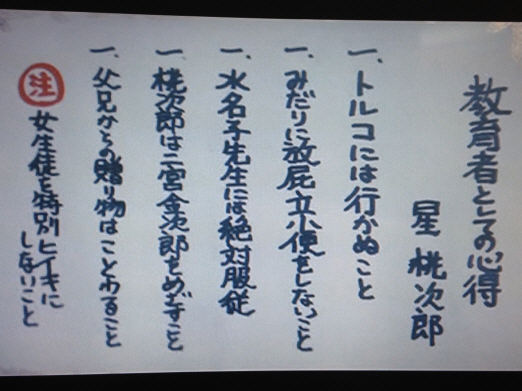 教育者としての心得
星桃次郎
一、トルコには行かぬこと
一、みだりに放屁立小便をしないこと
一、水名子先生には絶対服従
一、桃次郎は二宮金次郎をめざすこと
一、父兄からの贈り物はことわること
注 女生徒を特別ヒイキに
しないこと